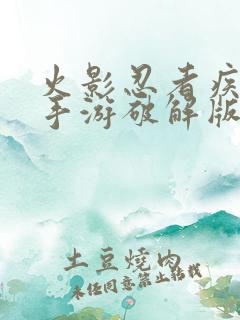 火影忍者疾
手游破解版
土豆燒肉
未经同意禁止转载